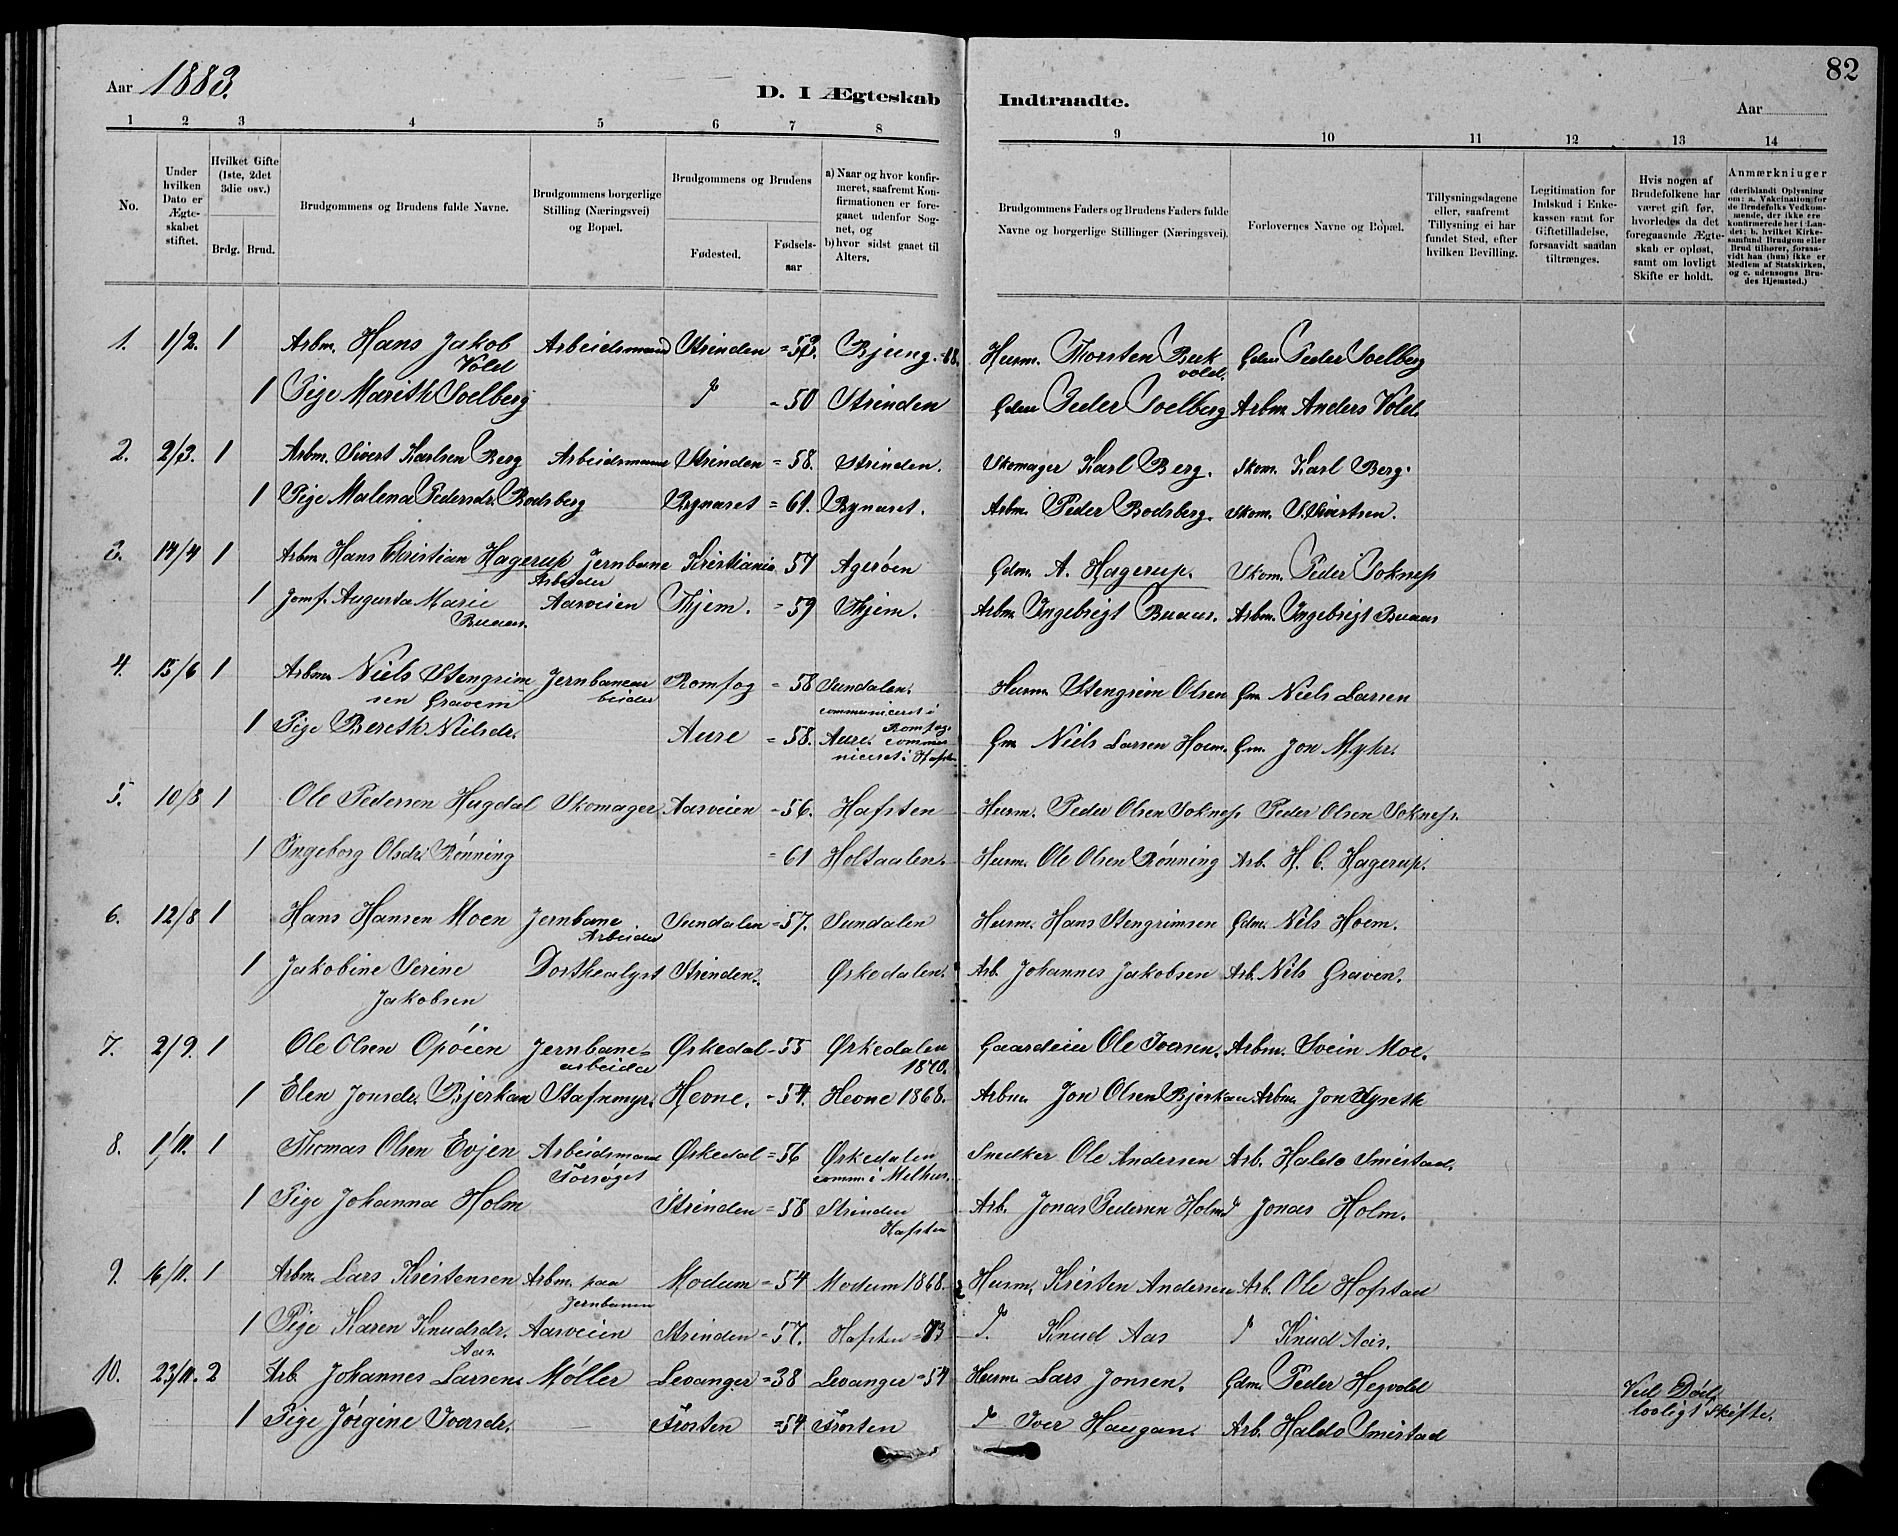 Aar 1883.
D. I Ægteskab Indtraadte.
Aar
82
1 2 3 4 5 6 7 8 9 10 11 12 13 14
No.
Under hvilken Dato er Ægte-skabet stiftet.
Hvilket Gifte (1ste, 2det 3die osv.)
Brdg. Brud.
Brudgommens og Brudens fulde Navne.
Brudgommens borgerlige Stilling (Næringsvei) og Bopæl.
Brudgommens og Brudens
Fødested.
Fødsels-aar
a) Naar og hvor konfir-meret, saafremt Kon-firmationen er fore-gaaet udenfor Sog-net, og
b) hvor sidst gaaet til Alters.
Brudgommens Faders og Brudens Faders fulde Navne og borgerlige Stillinger (Næringsvei).
Forlovernes Navne og Bopæl.
Tillysningsdagene eller, saafremt Tillysning ei har fundet Sted, efter hvilken Bevilling.
Legitimation for Indskud i Enke-kassen samt for Giftetilladelse, forsaavidt saadan tiltrænges.
Hvis nogen af Brudefolkene har været gift før, hvorledes da det foregaaende Ægte-skab er opløst, samt om lovligt Skifte er holdt.
Anmærkninger
(deriblandt Oplysning om: a. Vakcination for de Brudefolks Vedkom-mende, der ikke ere konfirmerede her i Lan-det; b. hvilket Kirke-samfund Brudgom eller Brud tilhører, forsaa-vidt han (hun) ikke er Medlem af Statskirken, og c. udensogns Bru-des Hjemsted.)
1. 1/2. 1 Arbm. Hans Jakob Vold Arbeidsmand Strinden =53. Bjung. -68. Husm. Thorsten Buk vold. Gdm. Peder Soelberg
1 Pige Marith Soelberg " -50 Strinden Gdm. Peder Soelberg Arbm. Anders Vold.
2. 2/3. 1 Arbm. Sivert Karlsen Berg Arbeidsmand Strinden =58. Strinden. Skomager Karl Berg. Skom. Karl Berg.
1 Pige Malena Pedersdr. Bodsberg Bynæset =61. Bynæset. Arbm. Peder Bodsberg. Skom. S. Sivertsen.
3. 14/4 1 Arbm. Hans Christian Hagerup Jernbane Arbeider Kristiania 57 Agerøen Gdm. A. Hagerup. Skom. Peder Soknes
1 Jomf. Augusta Marie Buaas. Aasveien Thjem. =59 Thjem. Arbm. Ingebrigt Buaas. Arbm. Ingebrigt Buaas
4. 15/6 1 Arbm. Niels Stengrim sen Gravem Jernbanear beider Romfog =58 Sundalen. communiceret i Romfog. Husm. Stengrim Olsen Gm. Niels Larsen
1 Pige Bereth Nielsdr. Aure =58. Aure. commu niceret i Hafsten Gm. Niels Larsen Hoem. Gm. Jon Myhr.
5. 10/8 1 Ole Pedersen Hugdal Skomager Aasveien -56. Hafsten Husm. Peder Olsen Soknes. Peder Olsen Soknes.
1 Ingeborg Olsdr. Rønning =61 Holtaalen. Husm. Ole Olsen Rønning Arb. H. C. Hagerup.
6. 12/8 1 Hans Hansen Moen Jernbane Arbeider Sundalen =57. Sundalen Husm. Hans Stengrimsen Gdm. Nils Hoem.
1 Jakobine Serine Jakobsen Dorthealyst Strinden. Ørkedalen. Arb. Johannes Jakobsen Arb. Nils Graven.
7. 2/9. 1 Ole Olsen Opøien Jernbane= arbeider Ørkedal -55 Ørkedalen 1870. Gaardeier Ole Iversen. Arbm. Svein Moe.
1 Elen Jonsdr. Bjerkan Stafnmyr. Hevne. -54. Hevne 1868. Arbm. Jon Olsen Bjerkan Arbm. Jon Hyseth
8. 1/11. 1 Thomas Olsen Evjen Arbeidsmand Forsøget Ørkedal =56 Ørkedalen comm: i Melhus. Snedker Ole Andersen Arb. Haldo Smistad.
1 Pige Johanna Holm Strinden =58 Strinden Hafsten Arb. Jonas Pedersen Holm " Jonas Holm.
9. 16/11. 1 Arbm. Lars Kristensen Arbm. paa Jernbanen Modum =54 Modum 1868. Husm. Kristen Andersen Arb. Ole Hofstad
1 Pige Karen Knudsdr. Aas Aasveien Strinden =57. Hafsten =73 " Knud Aas " Knud Aas.
10. 23/11. 2 Arb. Johannes Larsen. Møller Levanger =38 Levanger =54 Husm. Lars Jonsen. Gdm. Peder Hegvold Ved Død, lovligt Skifte.
1 Pige Jørgine Iversdr. Frosten =54 Frosten " Iver Haugan. Arb. Haldo Smistad